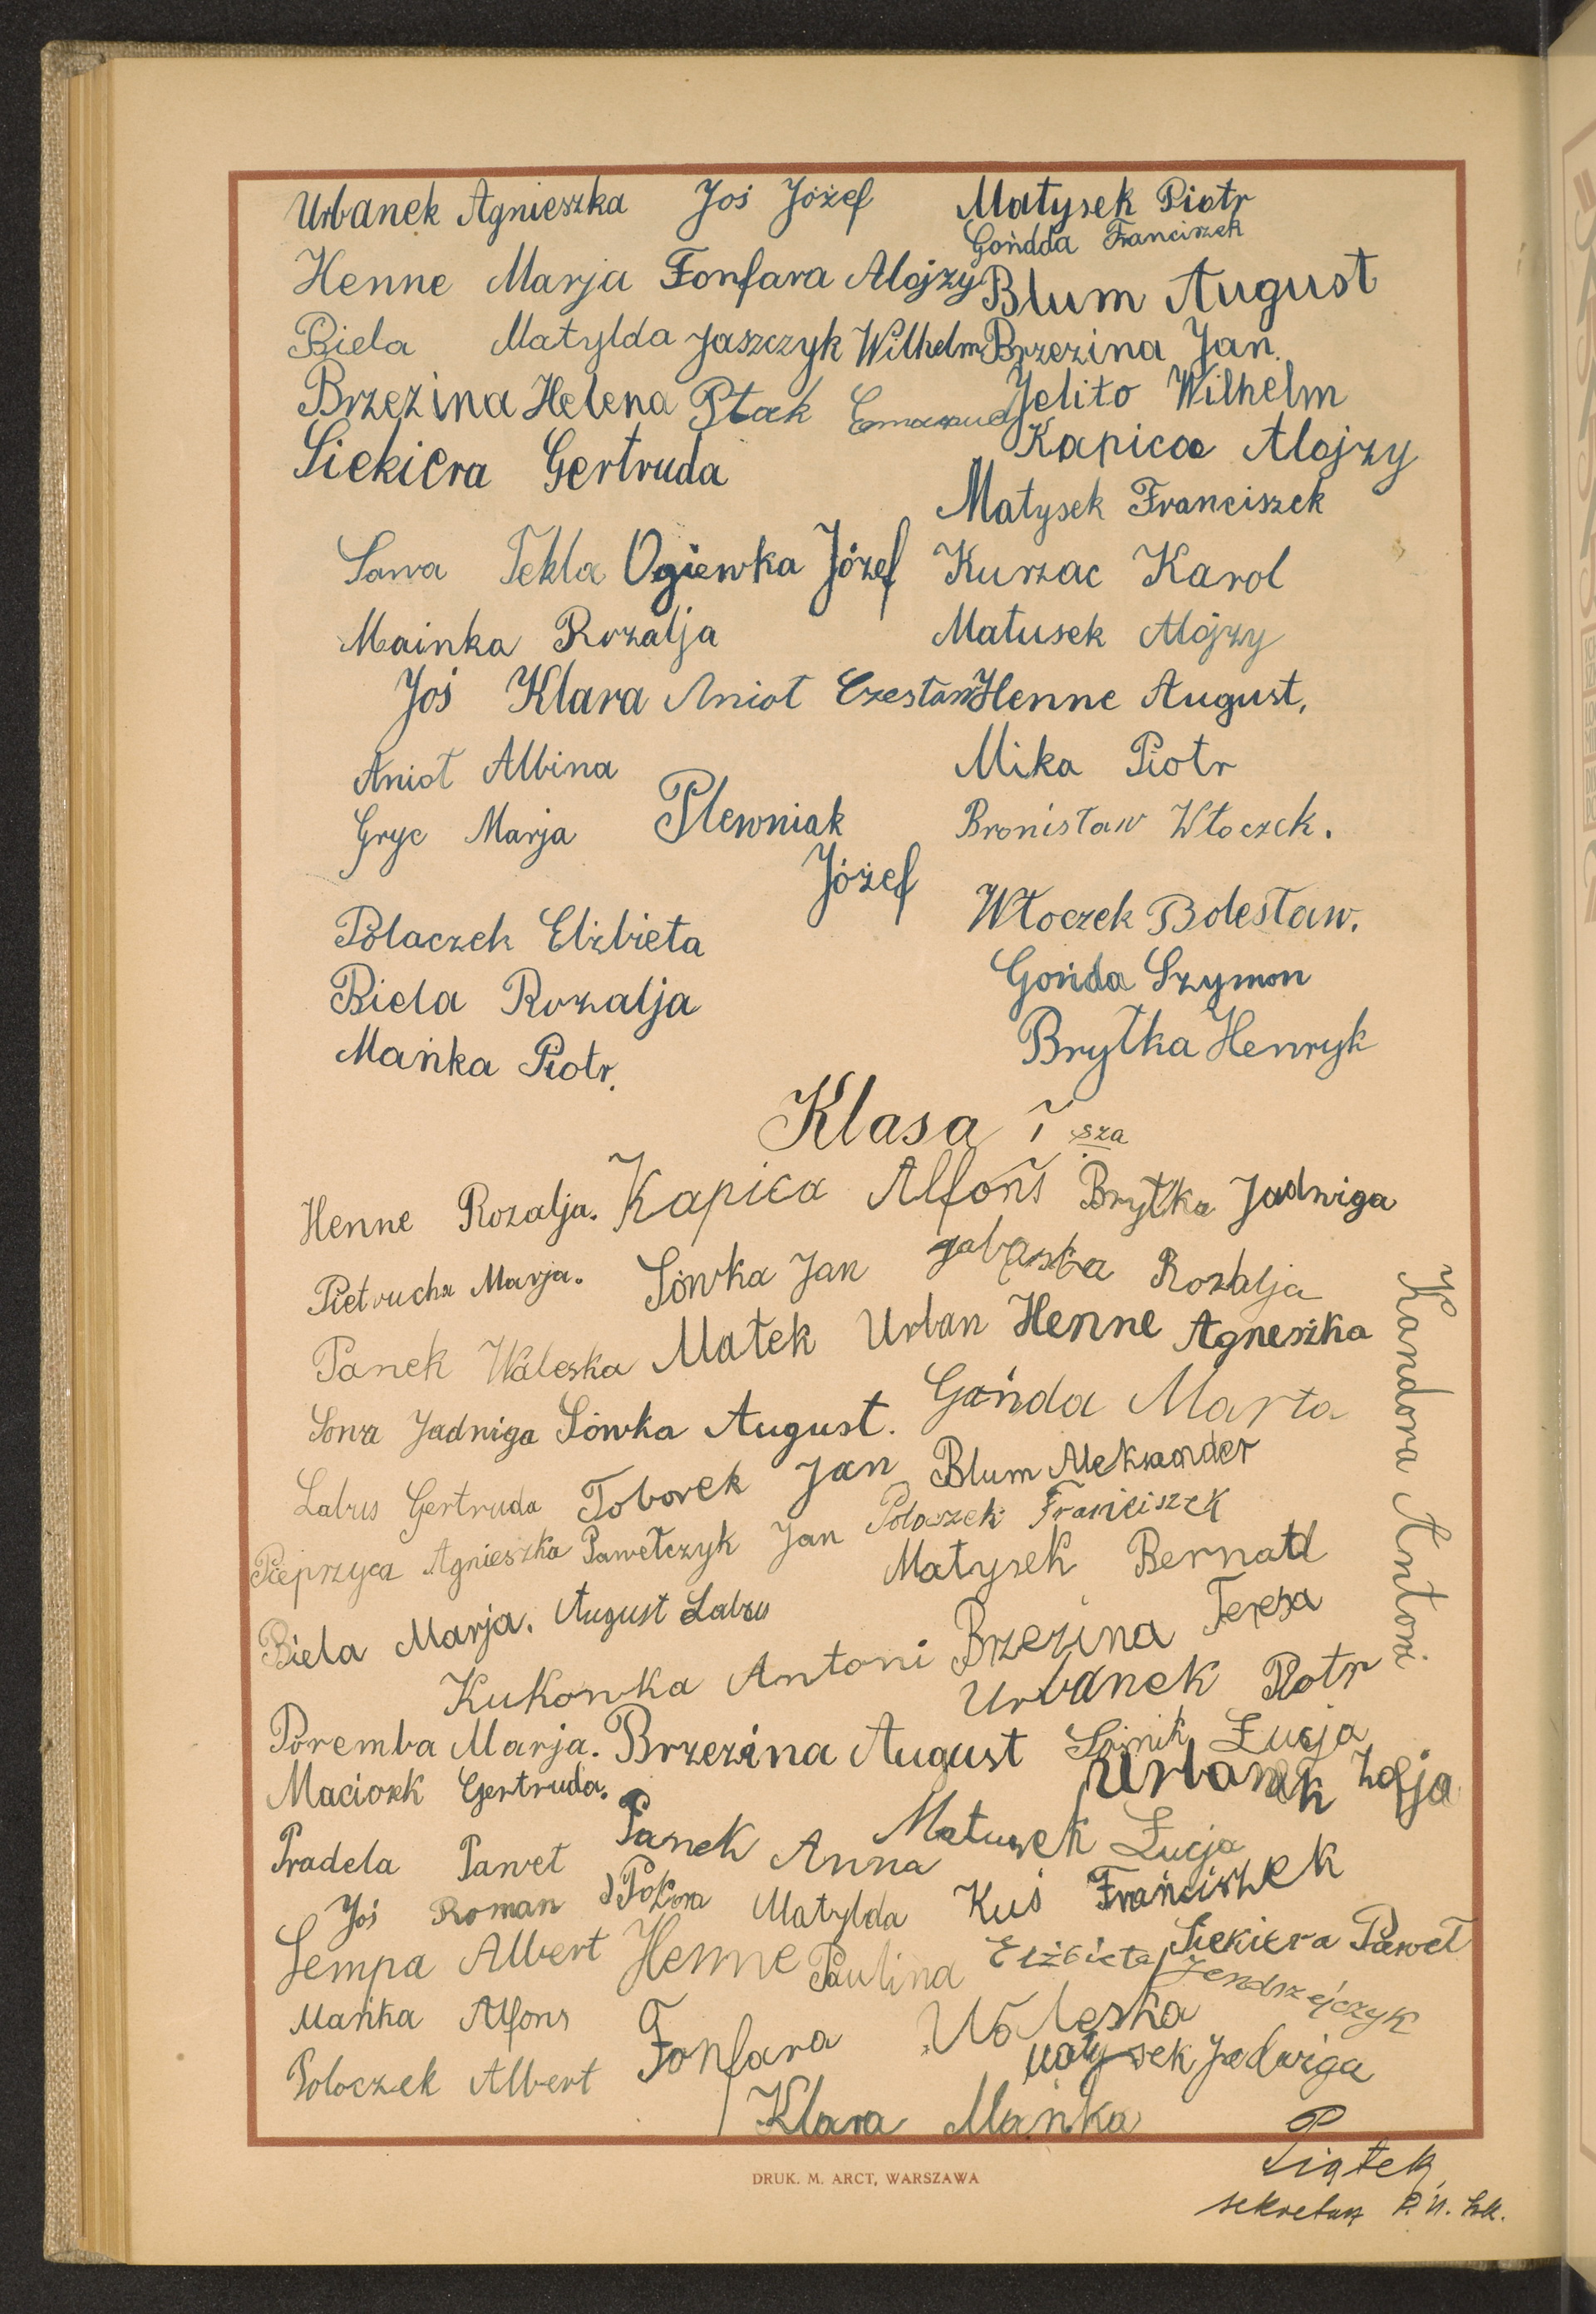 Urbanek Agnieszka Joś Józef Matysek Piotr
Gońdda Franciszek
Henne Marja Fonfara Alojzy Blum August
Biela Matylda Jaszczyk Wilhelm Brzezina Jan.
Brzezina Helena Ptak Emanuel Jelito Wilhelm
Siekiera Gertruda Kapica Alojzy
Matysek Franciszek
Sawa Tekla Ogiewka Józef Kurzac Karol
Mainka Rozalja Matusek Alojzy
Joś Klara Anioł Czesław Henne August,
Anioł Albina Mika Piotr
Gryc Marja Plewniak Bronisław Włoczek.
Józef
Polaczek Elżbieta Włoczek Bolesław.
Biela Rozalja Gońda Szymon
Mańka Piotr. Brytka Henryk
Klasa I sza
Henne Rozalja. Kapica Alfons Brytka Jadwiga
Pietrucha Marja. Sówka Jan Rozalja
Panek Waleska Matek Urban Henne Agneszka
Sowa Jadwiga Sówka August. Gańda Marta
Labus Gertruda Toborek Jan Blum Aleksander
Pieprzyca Agnieszka Pawełczyk Jan Poloczek Franciszek
Matysek Bernatd
Biela Marja. August Labus Brzezina Teresa
Kukowka Antoni Urbanek Piotr
Poremba Marja. Brzezina August Łucja
Maciosek Gertruda. Urbanek Zofja
Pradela Paweł Panek Anna Matusek Łucja
Joś Roman Pokora Matylda Kuś Franciszek
Sempa Albert Henne Paulina Elżbieta Jendrzejczyk Siekiera Paweł
Mańka Alfons Fonfara Waleska
Poloczek Albert Matysek Jadwiga
Klara Mańka
Kandora Antoni
Piątek
sekretarz
DRUK. M. ARCT, WARSZAWA